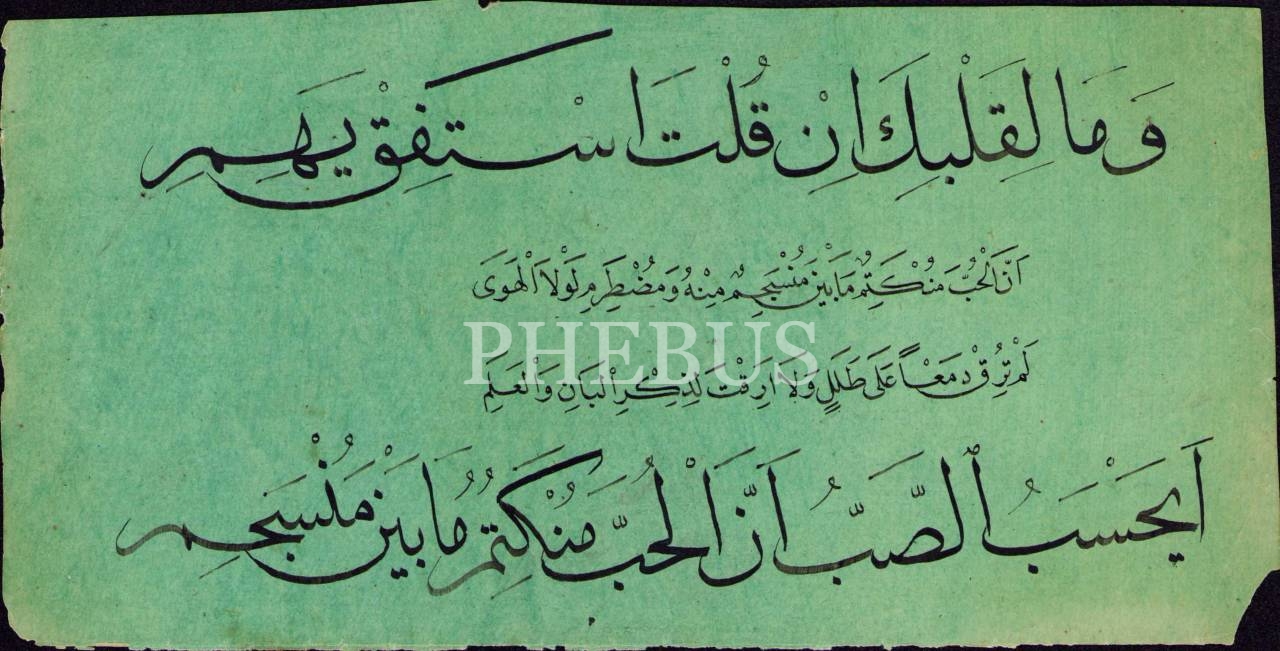 وَمَا لِقَلْبِكَ اِنْ قُلْتَ اسْتَفِقْ يَهِمِ
اَنَّ الْحُبَّ مُنْكَتِمٌ مَا بَيْنَ مُنْسَجِمٍ مِنْهُ وَمُضْطَرِمِ لَوْلاَ الْهَوَى
PHEBUS
لَمْ تُرِقْ دَمْعاً عَلَى طَلَلٍ وَلاَ اَرِقْتَ لِذِكْرِ الْبَانِ وَالْعَلَمِ
اَيَحْسَبُ الصَّبُّ اَنَّ الْحُبَّ مُنْكَتِمٌ مَا بَيْنَ مُنْسَجِمٍ